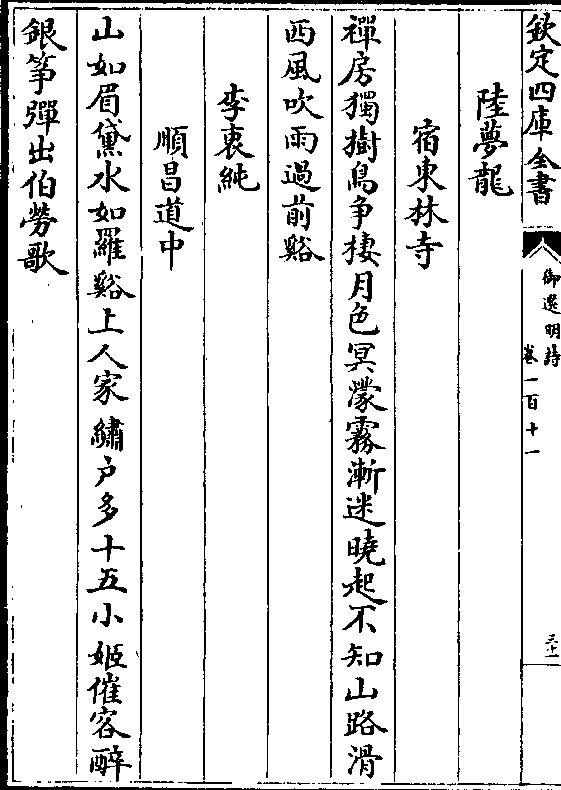 欽定四庫全書
御選明詩
卷一百十一
三十一
陸夢龍
宿東林寺
禪房獨樹鳥争棲月色冥濛霧漸迷曉起不知山路滑
西風吹雨過前谿
李衷純
順昌道中
山如眉黛水如羅谿上人家繡户多十五小姬催客醉
銀筝彈出伯勞歌